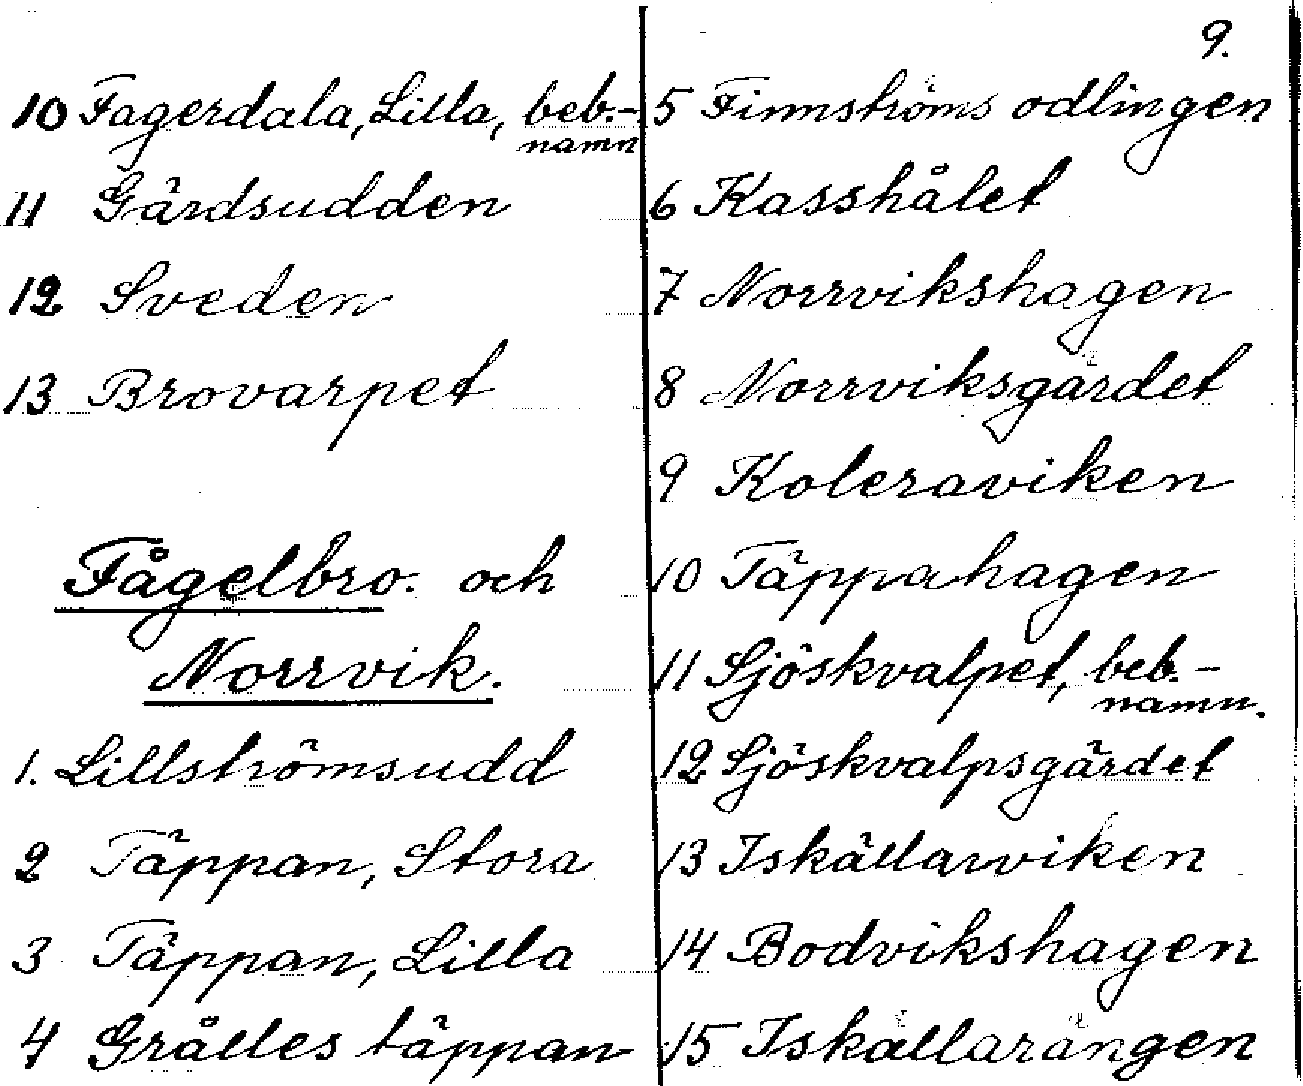 9.
10 Fagerdala, Lilla, beb.-
namn
11 Gärdsudden
12 Sveden
13 Brovarpet
Fågelbro. och
Norrvik.
1. Lillströmsudd
2 Täppan, Stora
3 Täppan, Lilla
4 Grålles täppan
5 Finnströms odlingen
6 Kasshålet
7 Norrvikshagen
8 Norrviksgärdet
9 Koleraviken
10 Täppahagen
11 Sjöskvalpet, beb.-
namn.
12 Sjöskvalpsgärdet
13 Iskällarviken
14 Bodvikshagen
15 Iskällarängen